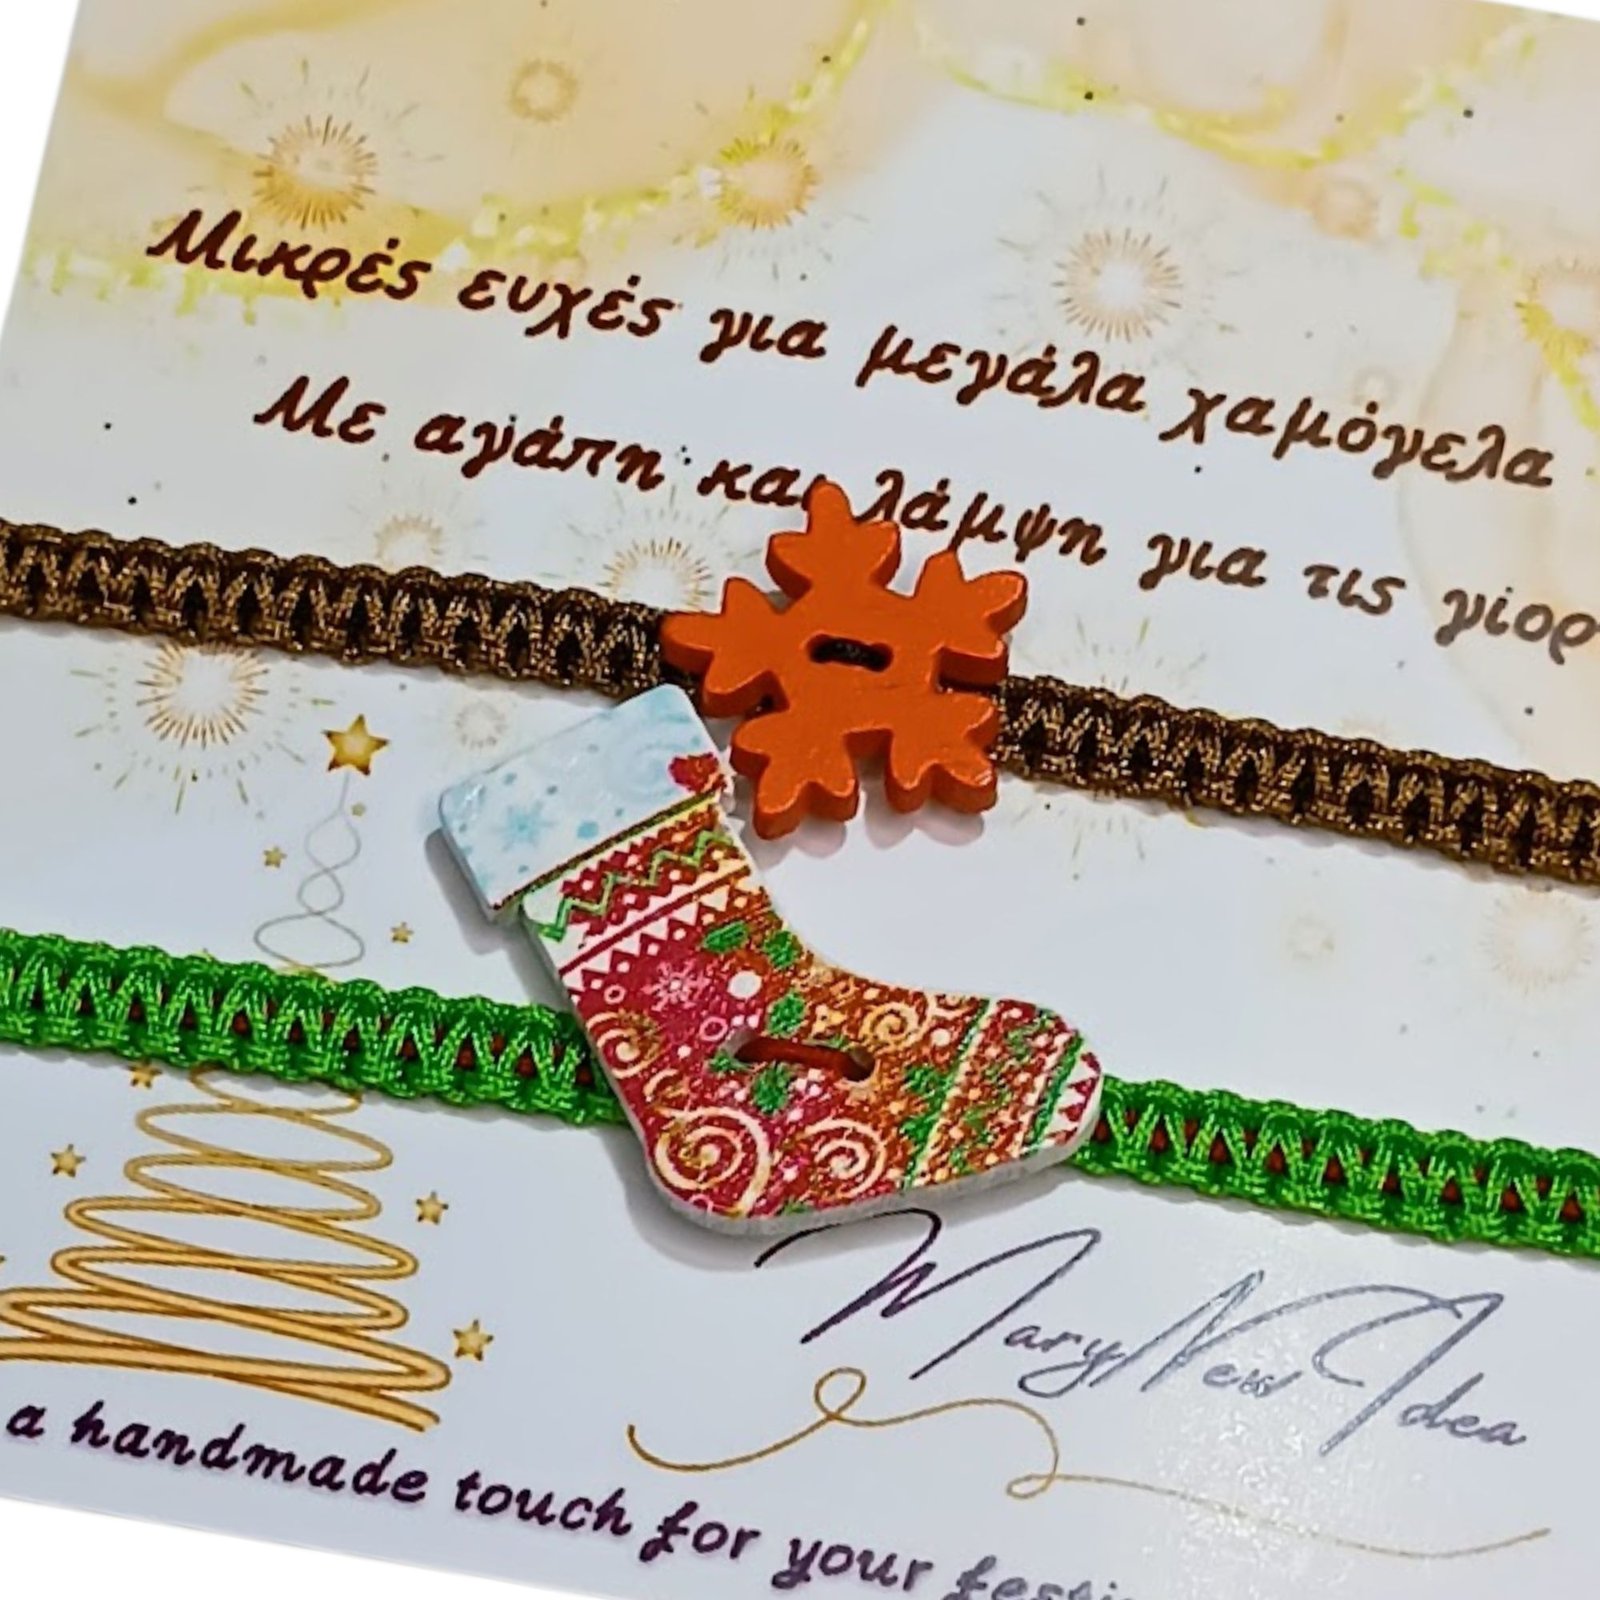 Μικρές ευχές για μεγάλα χαμόγελα
Με αγάπη και λάμψη για τις
MaryNewIdea
a handmade touch for your